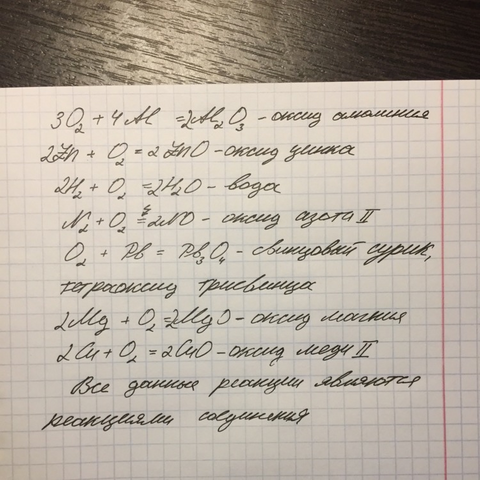 3O₂ + 4Al = 2Al₂O₃ - оксид алюминия
2Zn + O₂ = 2ZnO - оксид цинка
2H₂ + O₂ = 2H₂O - вода
N₂ + O₂ = 2NO - оксид азота II
O₂ + Pb = Pb₃O₄ - свинцовый сурик,
тетраоксид трисвинца
2Mg + O₂ = 2MgO - оксид магния
2Cu + O₂ = 2CuO - оксид меди II
Все данные реакции являются
реакциями соединения